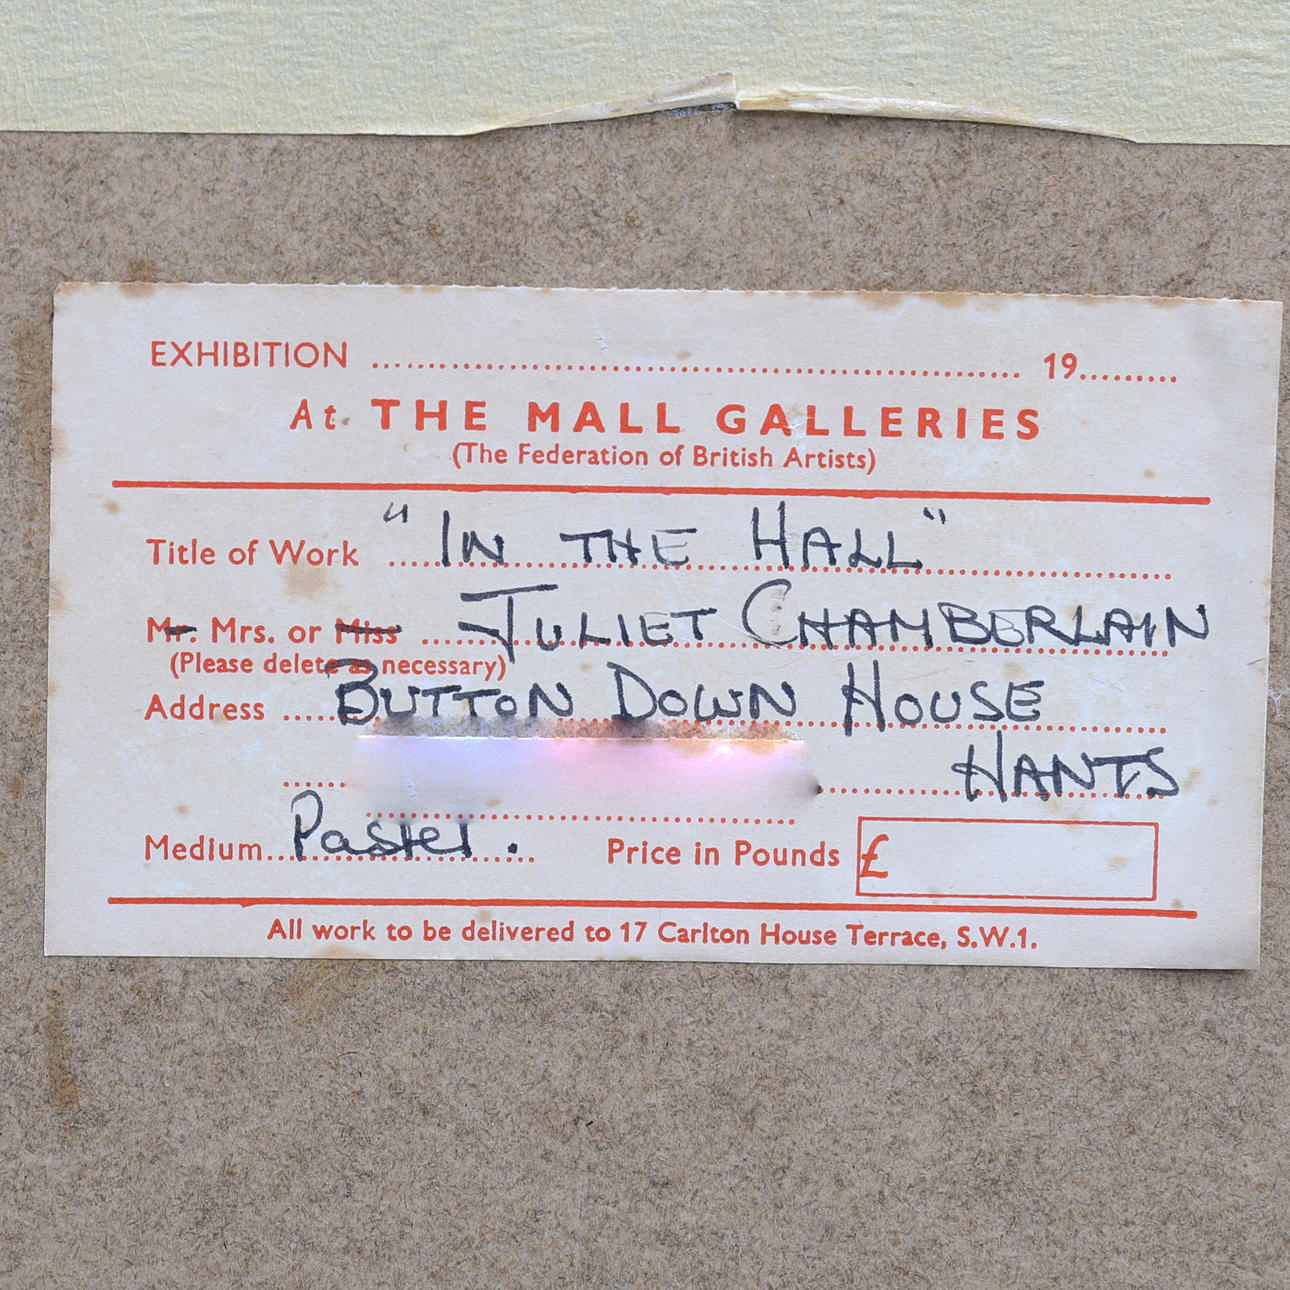 EXHIBITION .......... 19..........
At THE MALL GALLERIES
(The Federation of British Artists)
Title of Work "IN THE HALL"
Mr. Mrs. or Miss JULIET CHAMBERLAIN
(Please delete as necessary)
Address BUTTON DOWN HOUSE
HANTS
Medium Pastel. Price in Pounds £
All work to be delivered to 17 Carlton House Terrace, S.W.1.